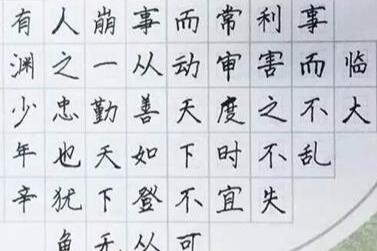 临大
事而不乱
利害之不失
常审度时宜
而动天下不可
事从善如登从
崩一勤天下无
人之忠也犹鱼
有渊少年辛